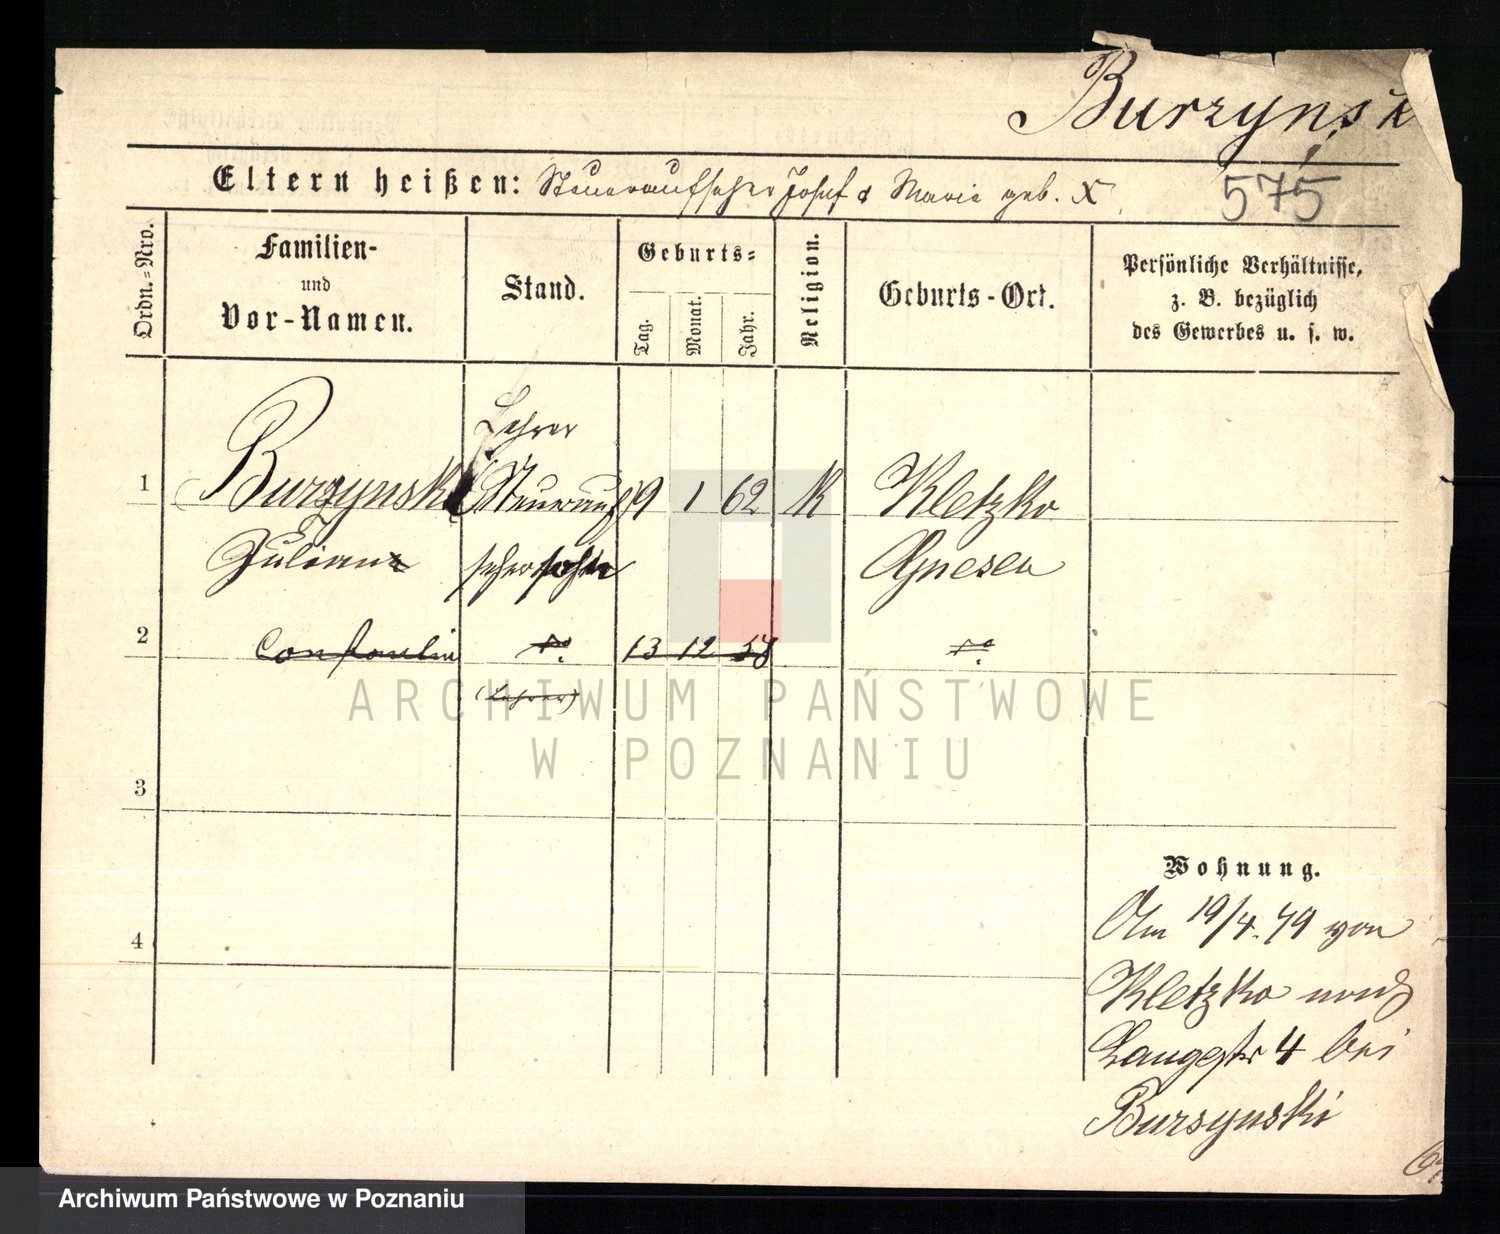 Burzynsk
575
Eltern heißen: Steueraufseher Josef & Marie geb. X.
Ordn.=Nro.
Familien-
und
Vor-Namen.
Stand.
Geburts=
Tag.
Monat.
Jahr.
Religion.
Geburts-Ort.
Persönliche Verhältnisse,
z. B. bezüglich
des Gewerbes u. s. w.
Lehrer
1 Burzynski Steuerauf 9 1 62 K Kletzko
Julian sehersohn Gnesen
2 Constantin do. 13 12 58 do.
(Lehrer)
ARCHIWUM PAŃSTWOWE
W POZNANIU
3
Wohnung.
4
Am 19/4. 79 von
Kletzko nach
Langestr 4 bei
Bursynski
Archiwum Państwowe w Poznaniu